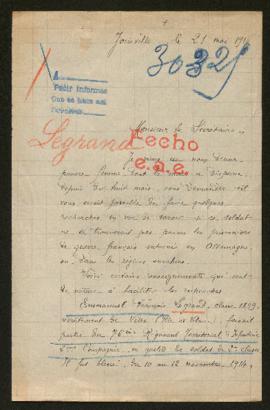 Joinville le 21 mai 191
3032
A
Pedir informes
Que se haga así
Legrand
Fecho
e.a.e.
Monsieur le Secrétaire
Je viens au nom d'une
pauvre femme dont le mari a disparu
depuis dix huit mois, vous demander s'il
vous serait possible de faire quelques
recherches en vue de savoir si ce soldat
ne se trouverait pas parmi les prisonniers
de guerre français internés en Allemagne
ou dans les régions envahies.
Voici certains renseignements qui sont
de nature à faciliter les recherches
Emmanuel François Legrand, classe 1899
recrutement de
partie du 76ème Régiment Territorial d'Infanterie
Compagnie, en qualité de soldat de 2e classe
Il fut blessé, du 10 au 12 novembre 1914,